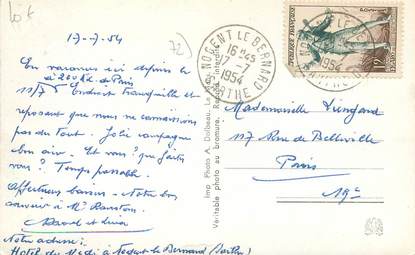 17-7-54
En vacances ici depuis le
à 200 Km de Paris
11/7 Endroit tranquille et
reposant que nous ne connaissions
pas du tout. Jolie campagne
bon air. Et vous? Que faites
vous? Temps passable.
Affectueux baisers - Notre bon
souvenir à Mr
et
Notre adresse:
Hôtel du Midi à Nogent le Bernard (Sarthe)
72
Imp Photo A. Dolbeau. Le Mans
Véritable photo au bromure. Reprod. interdite
NOGENT LE BERNARD
16 H 45
17-7
1954
SARTHE
POSTE FRANÇAISE
12F
1954
Mademoiselle
117 Rue de Belleville
Paris
19e